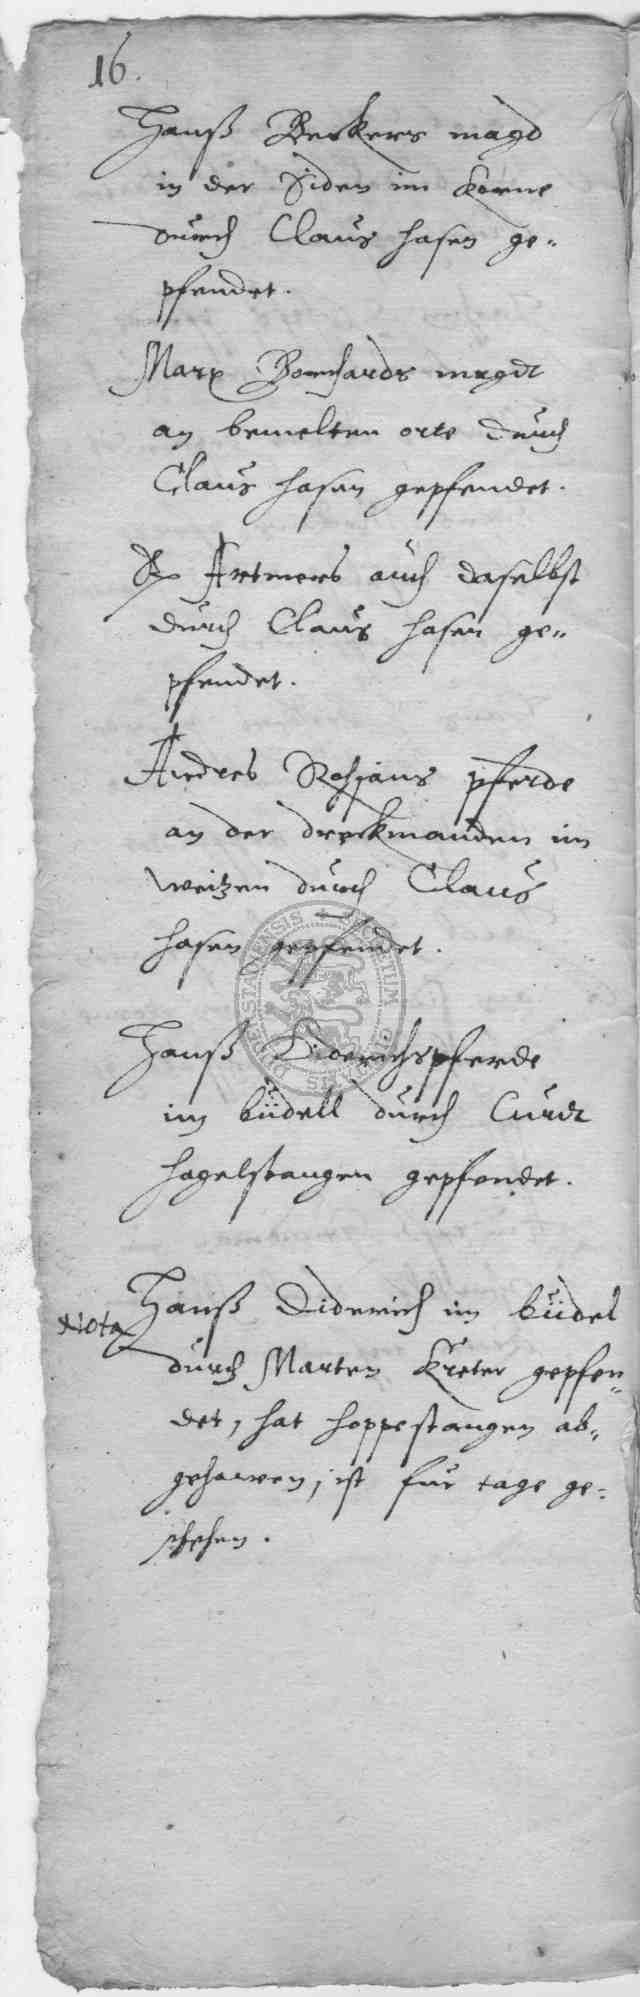 16.
Hanß Beckers magd
in der Siden im Korne
durch Claus hasen ge-
pfendet.
Marx Borchards magdt
an bemelten orte durch
Claus hasen gepfendet.
Artmers auch daselbst
durch Claus hasen ge-
pfendet.
Andres pferde
an der im
weitzen durch Claus
hasen gepfendet.
Hanß Diderichs pferde
im büdell durch Curdt
hagelstangen gepfendet.
Nota
Hanß Diderich im büdel
durch Marten Kreter gepfen-
det, hat hoppestangen ab-
gehawen, ist für tage ge-
schehen.
SECRETUM